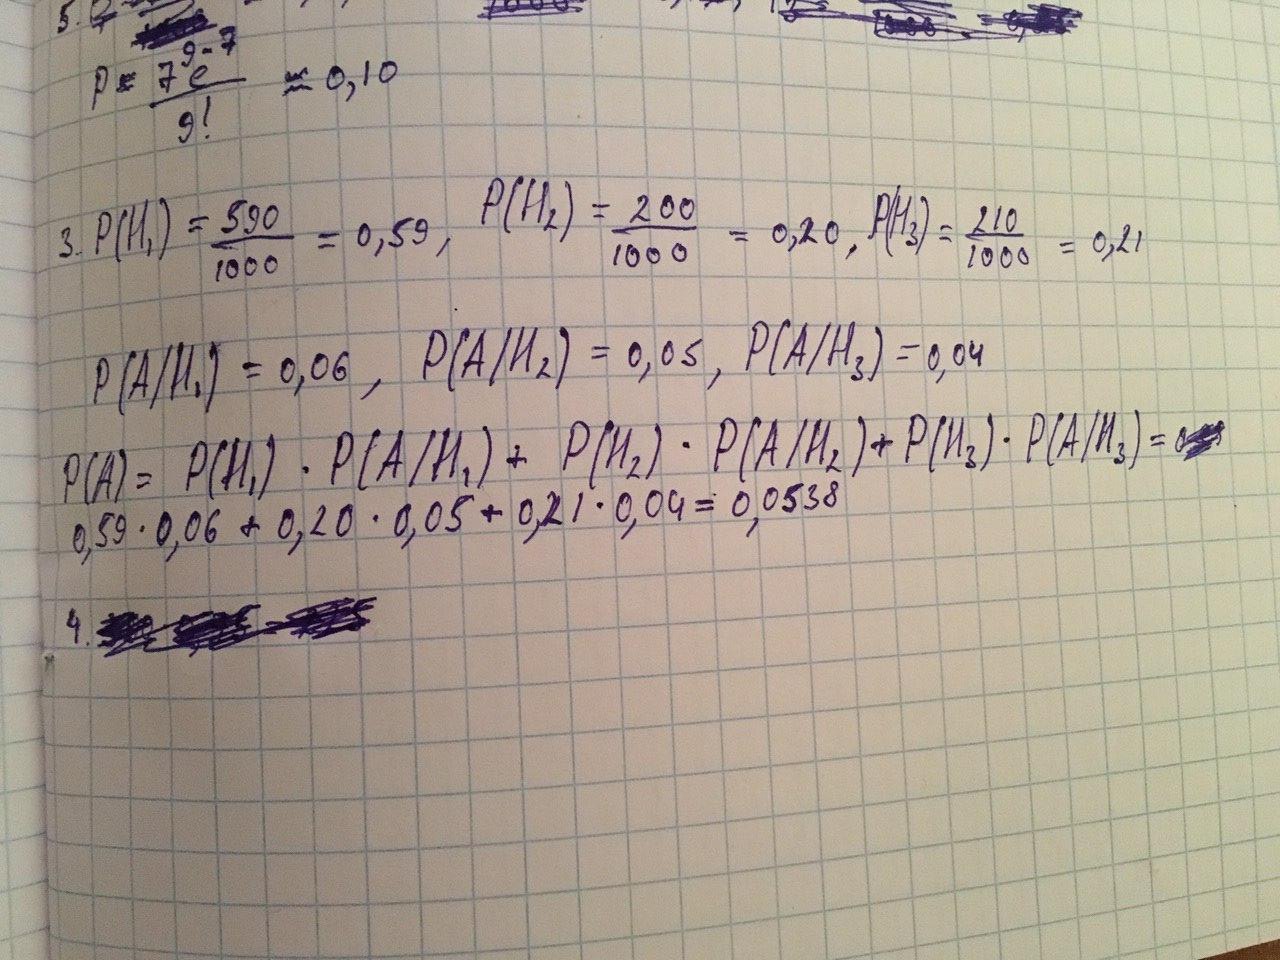 5.
P = 7⁹e⁻⁷ / 9! ≈ 0,10
3. P(H₁) = 590/1000 = 0,59, P(H₂) = 200/1000 = 0,20, P(H₃) = 210/1000 = 0,21
P(A/H₁) = 0,06, P(A/H₂) = 0,05, P(A/H₃) = 0,04
P(A) = P(H₁) · P(A/H₁) + P(H₂) · P(A/H₂) + P(H₃) · P(A/H₃) =
0,59 · 0,06 + 0,20 · 0,05 + 0,21 · 0,04 = 0,0538
4.